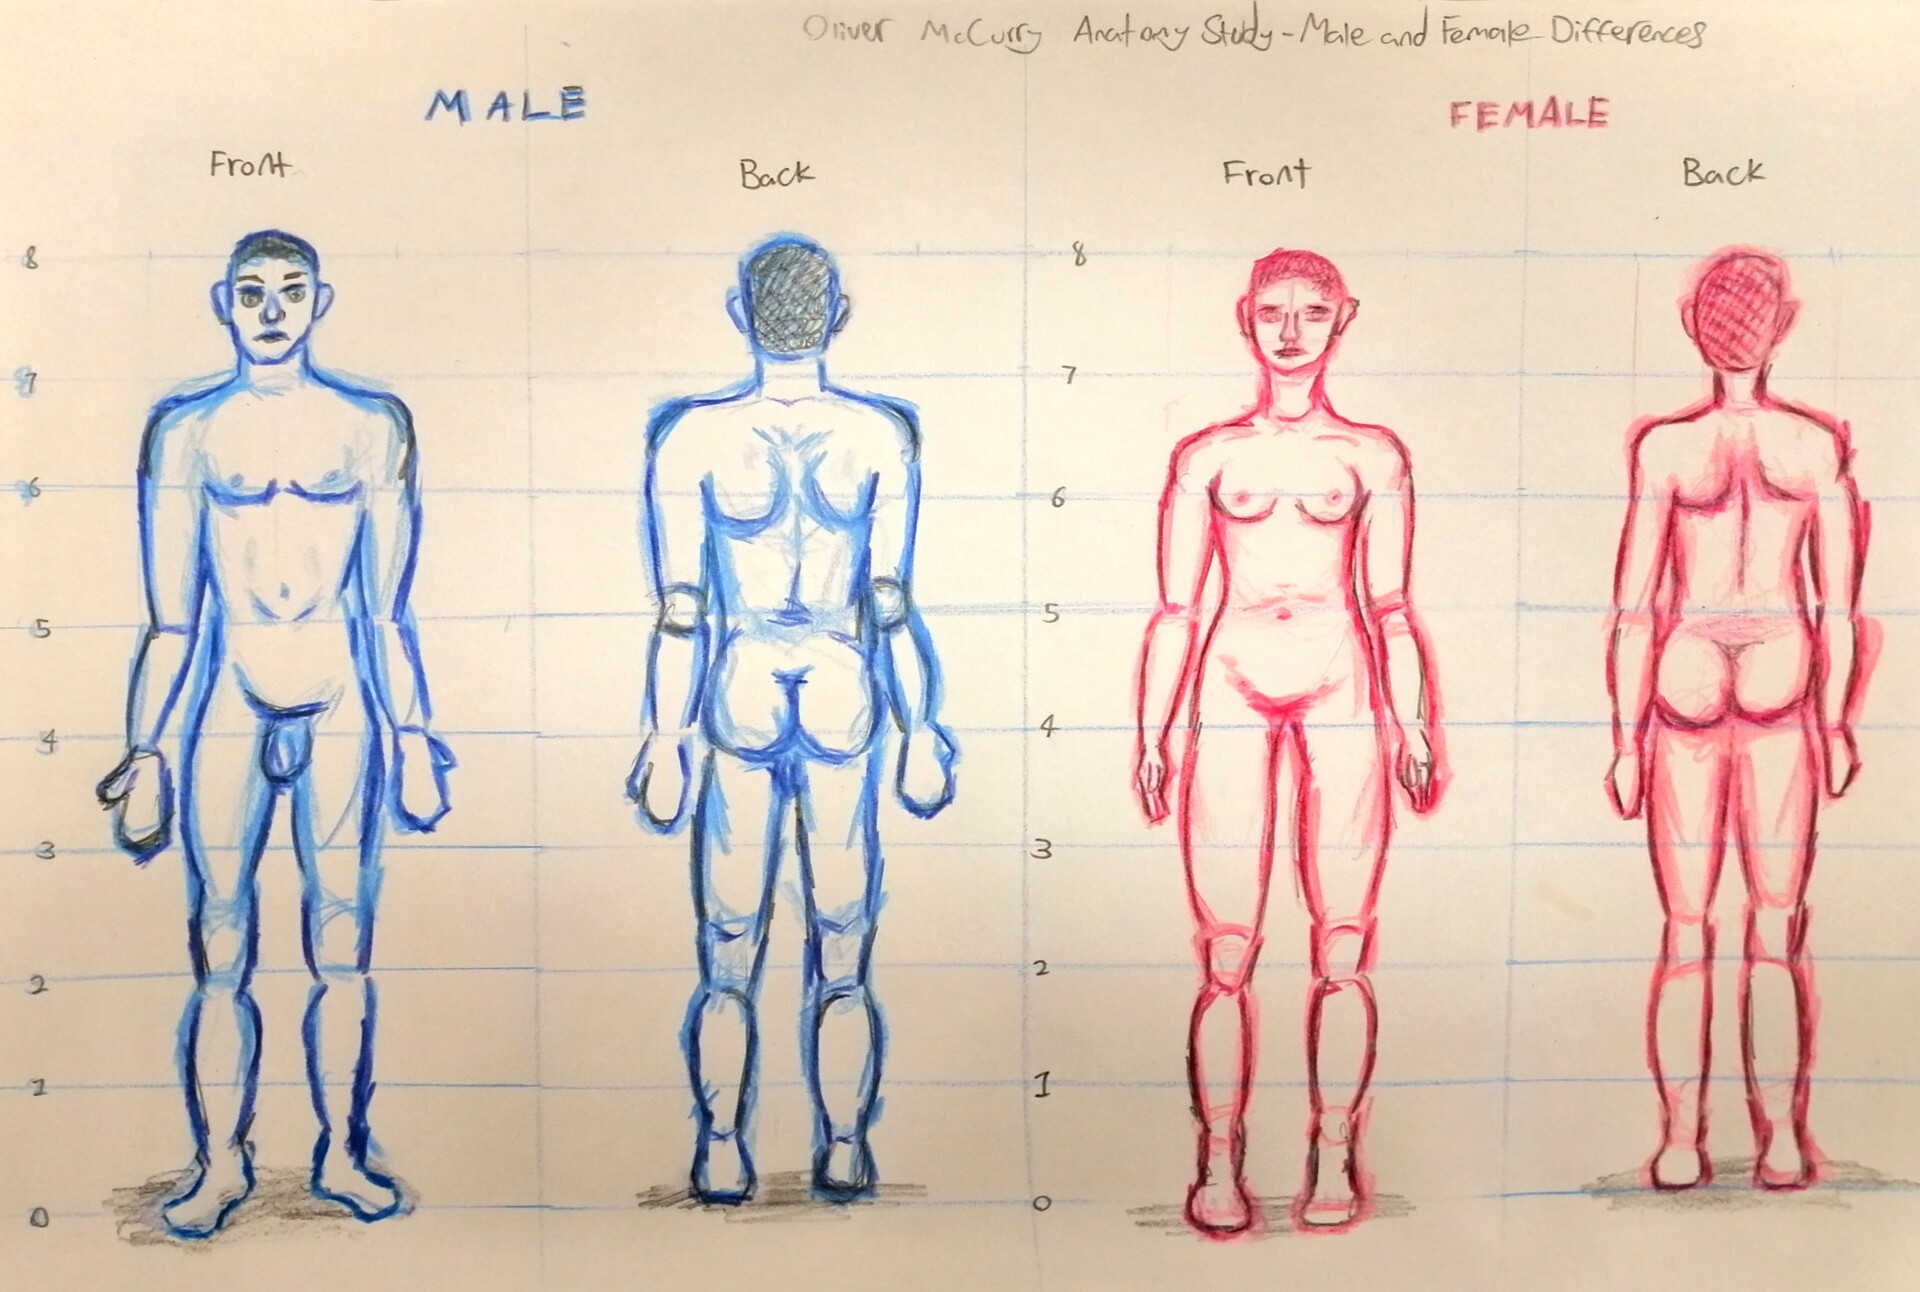 Oliver McCurry Anatomy Study - Male and Female Differences
MALE
FEMALE
Front
Back
Front
Back
8
8
7
7
6
6
5
5
4
4
3
3
2
2
1
1
0
0